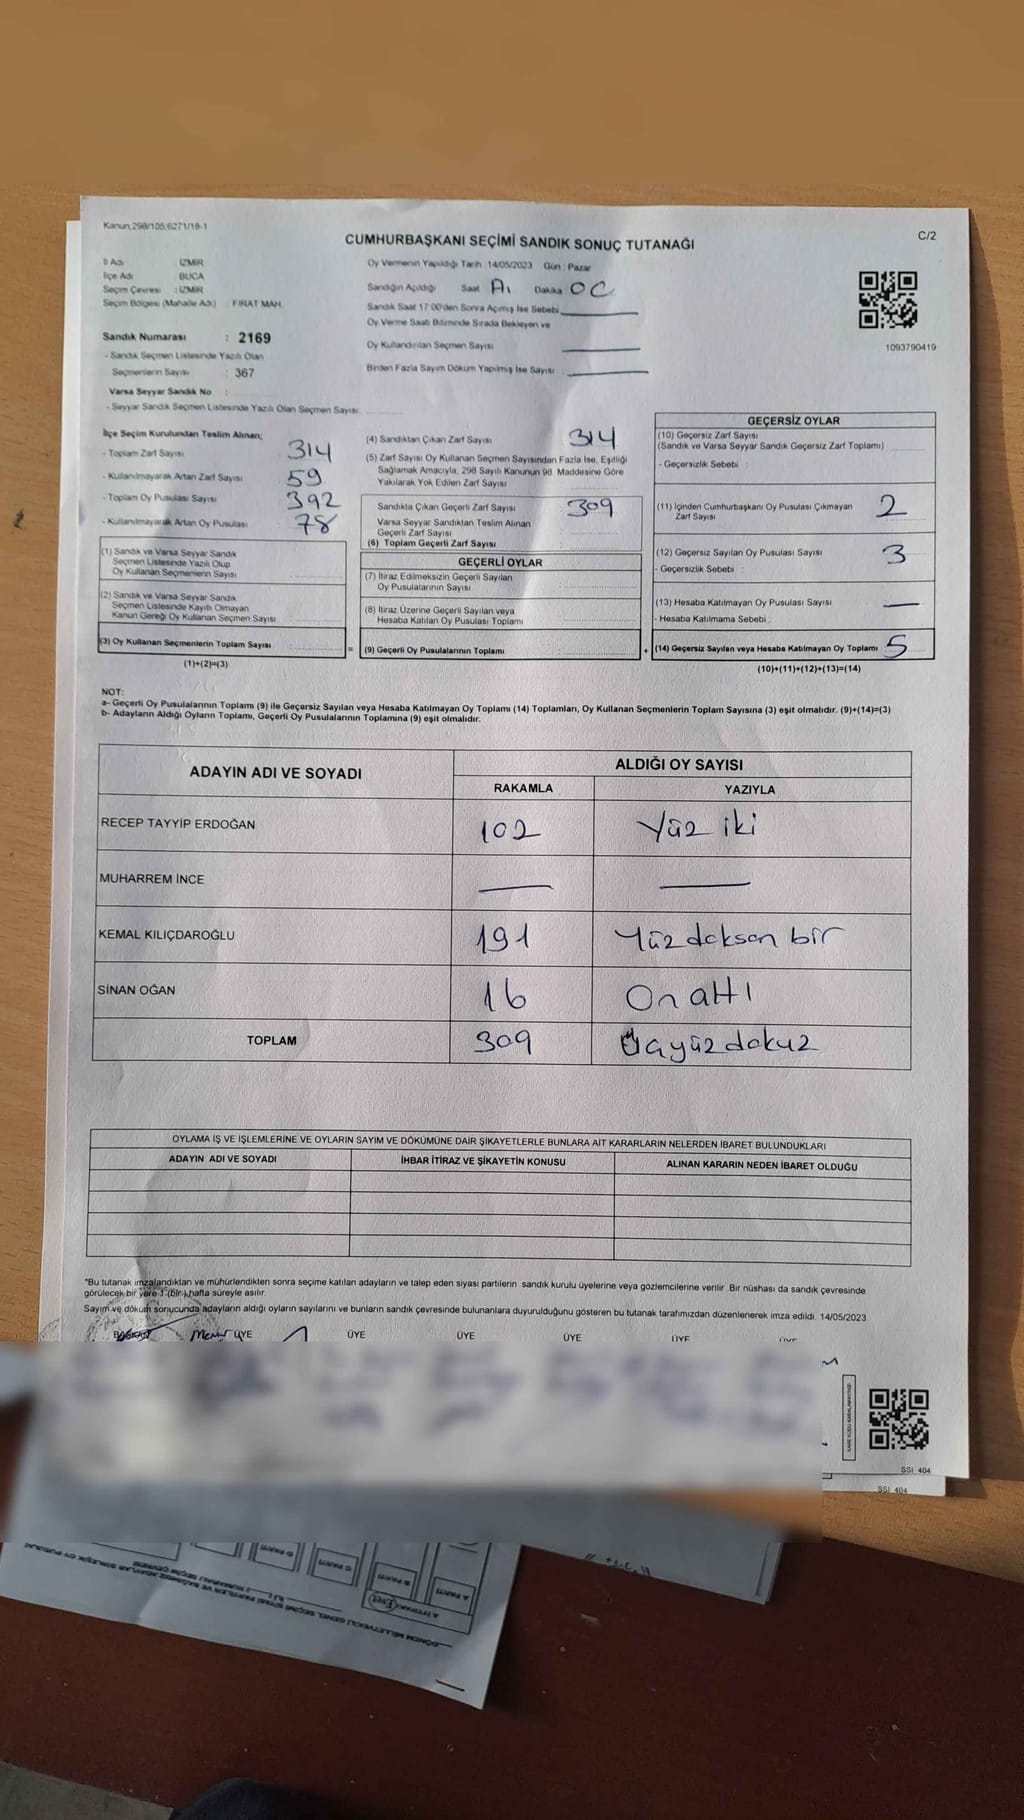 Kanun;298/105;6271/18-1
C/2
CUMHURBAŞKANI SEÇİMİ SANDIK SONUÇ TUTANAĞI
İl Adı : İZMİR
İlçe Adı : BUCA
Seçim Çevresi : İZMİR
Seçim Bölgesi (Mahalle Adı) : FIRAT MAH.
Sandık Numarası : 2169
- Sandık Seçmen Listesinde Yazılı Olan
Seçmenlerin Sayısı : 367
Varsa Seyyar Sandık No :
- Seyyar Sandık Seçmen Listesinde Yazılı Olan Seçmen Sayısı:
Oy Vermenin Yapıldığı Tarih :14/05/2023 Gün : Pazar
Sandığın Açıldığı Saat Dakika
Sandık Saat 17.00'den Sonra Açımış İse Sebebi:
Oy Verme Saati Bitiminde Sırada Bekleyen ve
Oy Kullandırılan Seçmen Sayısı :
Birden Fazla Sayım Döküm Yapılmış İse Sayısı :
1093790419
İlçe Seçim Kurulundan Teslim Alınan;
- Toplam Zarf Sayısı : 314
- Kullanılmayarak Artan Zarf Sayısı : 59
- Toplam Oy Pusulası Sayısı : 392
- Kullanılmayarak Artan Oy Pusulası : 78
(1) Sandık ve Varsa Seyyar Sandık
Seçmen Listesinde Yazılı Olup
Oy Kullanan Seçmenlerin Sayısı :
(2) Sandık ve Varsa Seyyar Sandık
Seçmen Listesinde Kayıtlı Olmayan
Kanun Gereği Oy Kullanan Seçmen Sayısı :
(3) Oy Kullanan Seçmenlerin Toplam Sayısı :
(1)+(2)=(3)
(4) Sandıktan Çıkan Zarf Sayısı : 314
(5) Zarf Sayısı Oy Kullanan Seçmen Sayısından Fazla İse, Eşitliği
Sağlamak Amacıyla; 298 Sayılı Kanunun 98. Maddesine Göre
Yakılarak Yok Edilen Zarf Sayısı :
Sandıkta Çıkan Geçerli Zarf Sayısı : 309
Varsa Seyyar Sandıktan Teslim Alınan
Geçerli Zarf Sayısı :
(6) Toplam Geçerli Zarf Sayısı :
GEÇERLİ OYLAR
(7) İtiraz Edilmeksizin Geçerli Sayılan
Oy Pusulalarının Sayısı :
(8) İtiraz Üzerine Geçerli Sayılan veya
Hesaba Katılan Oy Pusulası Toplamı :
= (9) Geçerli Oy Pusulalarının Toplamı :
GEÇERSİZ OYLAR
(10) Geçersiz Zarf Sayısı
(Sandık ve Varsa Seyyar Sandık Geçersiz Zarf Toplamı) :
- Geçersizlik Sebebi :
(11) İçinden Cumhurbaşkanı Oy Pusulası Çıkmayan
Zarf Sayısı : 2
(12) Geçersiz Sayılan Oy Pusulası Sayısı : 3
- Geçersizlik Sebebi :
(13) Hesaba Katılmayan Oy Pusulası Sayısı : —
- Hesaba Katılmama Sebebi :
+ (14) Geçersiz Sayılan veya Hesaba Katılmayan Oy Toplamı : 5
(10)+(11)+(12)+(13)=(14)
NOT:
a- Geçerli Oy Pusulalarının Toplamı (9) ile Geçersiz Sayılan veya Hesaba Katılmayan Oy Toplamı (14) Toplamları, Oy Kullanan Seçmenlerin Toplam Sayısına (3) eşit olmalıdır. (9)+(14)=(3)
b- Adayların Aldığı Oyların Toplamı, Geçerli Oy Pusulalarının Toplamına (9) eşit olmalıdır.
ADAYIN ADI VE SOYADI
ALDIĞI OY SAYISI
RAKAMLA YAZIYLA
RECEP TAYYİP ERDOĞAN 102 Yüz iki
MUHARREM İNCE — —
KEMAL KILIÇDAROĞLU 191 Yüzdoksan bir
SİNAN OĞAN 16 On altı
TOPLAM 309 Üçyüzdokuz
OYLAMA İŞ VE İŞLEMLERİNE VE OYLARIN SAYIM VE DÖKÜMÜNE DAİR ŞİKAYETLERLE BUNLARA AİT KARARLARIN NELERDEN İBARET BULUNDUKLARI
ADAYIN ADI VE SOYADI İHBAR İTİRAZ VE ŞİKAYETİN KONUSU ALINAN KARARIN NEDEN İBARET OLDUĞU
*Bu tutanak imzalandıktan ve mühürlendikten sonra seçime katılan adayların ve talep eden siyasi partilerin sandık kurulu üyelerine veya gözlemcilerine verilir. Bir nüshası da sandık çevresinde
görülecek bir yere 1 (bir) hafta süreyle asılır.
Sayım ve döküm sonucunda adayların aldığı oyların sayılarını ve bunların sandık çevresinde bulunanlara duyurulduğunu gösteren bu tutanak tarafımızdan düzenlenerek imza edildi. 14/05/2023
BAŞKAN Memur ÜYE ÜYE ÜYE ÜYE ÜYE ÜYE
SSI: 404
SSI: 404